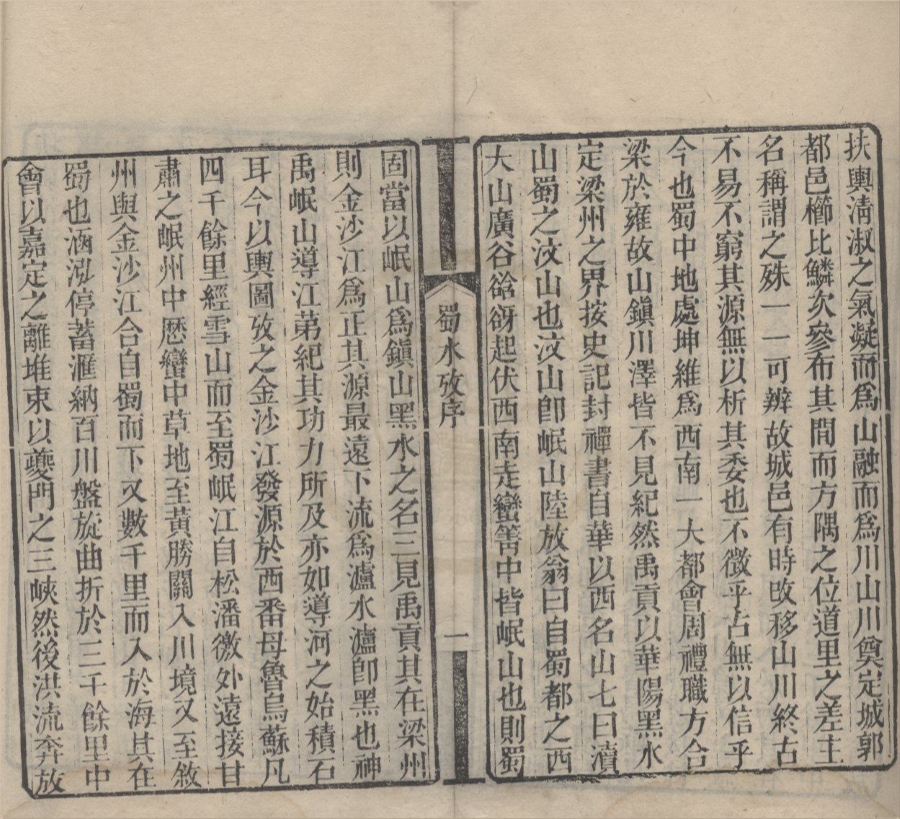 扶輿淸淑之氣凝而爲山融而爲川山川奠定城郭
都邑櫛比鱗次參布其間而方隅之位道里之差主
名稱謂之殊一一可辨故城邑有時攺移山川終古
不易不窮其源無以析其委也不徵乎古無以信乎
今也蜀中地處坤維爲西南一大都會周禮職方合
梁於雍故山鎭川澤皆不見紀然禹貢以華陽黑水
定梁州之界按史記封禪書自華以西名山七曰瀆
山蜀之汶山也汶山卽岷山陸放翁曰自蜀都之西
大山廣谷谽谺起伏西南走蠻箐中皆岷山也則蜀
蜀水攷序
一
固當以岷山爲鎭山黑水之名三見禹貢其在梁州
則金沙江爲正其源最遠下流爲瀘水瀘卽黑也神
禹岷山導江第紀其功力所及亦如導河之始積石
耳今以輿圖攷之金沙江發源於西番母魯烏蘇凡
四千餘里經雪山而至蜀岷江自松潘徼外遠接甘
肅之岷州中歷蠻中草地至黃勝關入川境又至敘
州與金沙江合自蜀而下又數千里而入於海其在
蜀也涵泓停蓄滙納百川盤旋曲折於三千餘里中
會以嘉定之離堆束以夔門之三峽然後洪流奔放